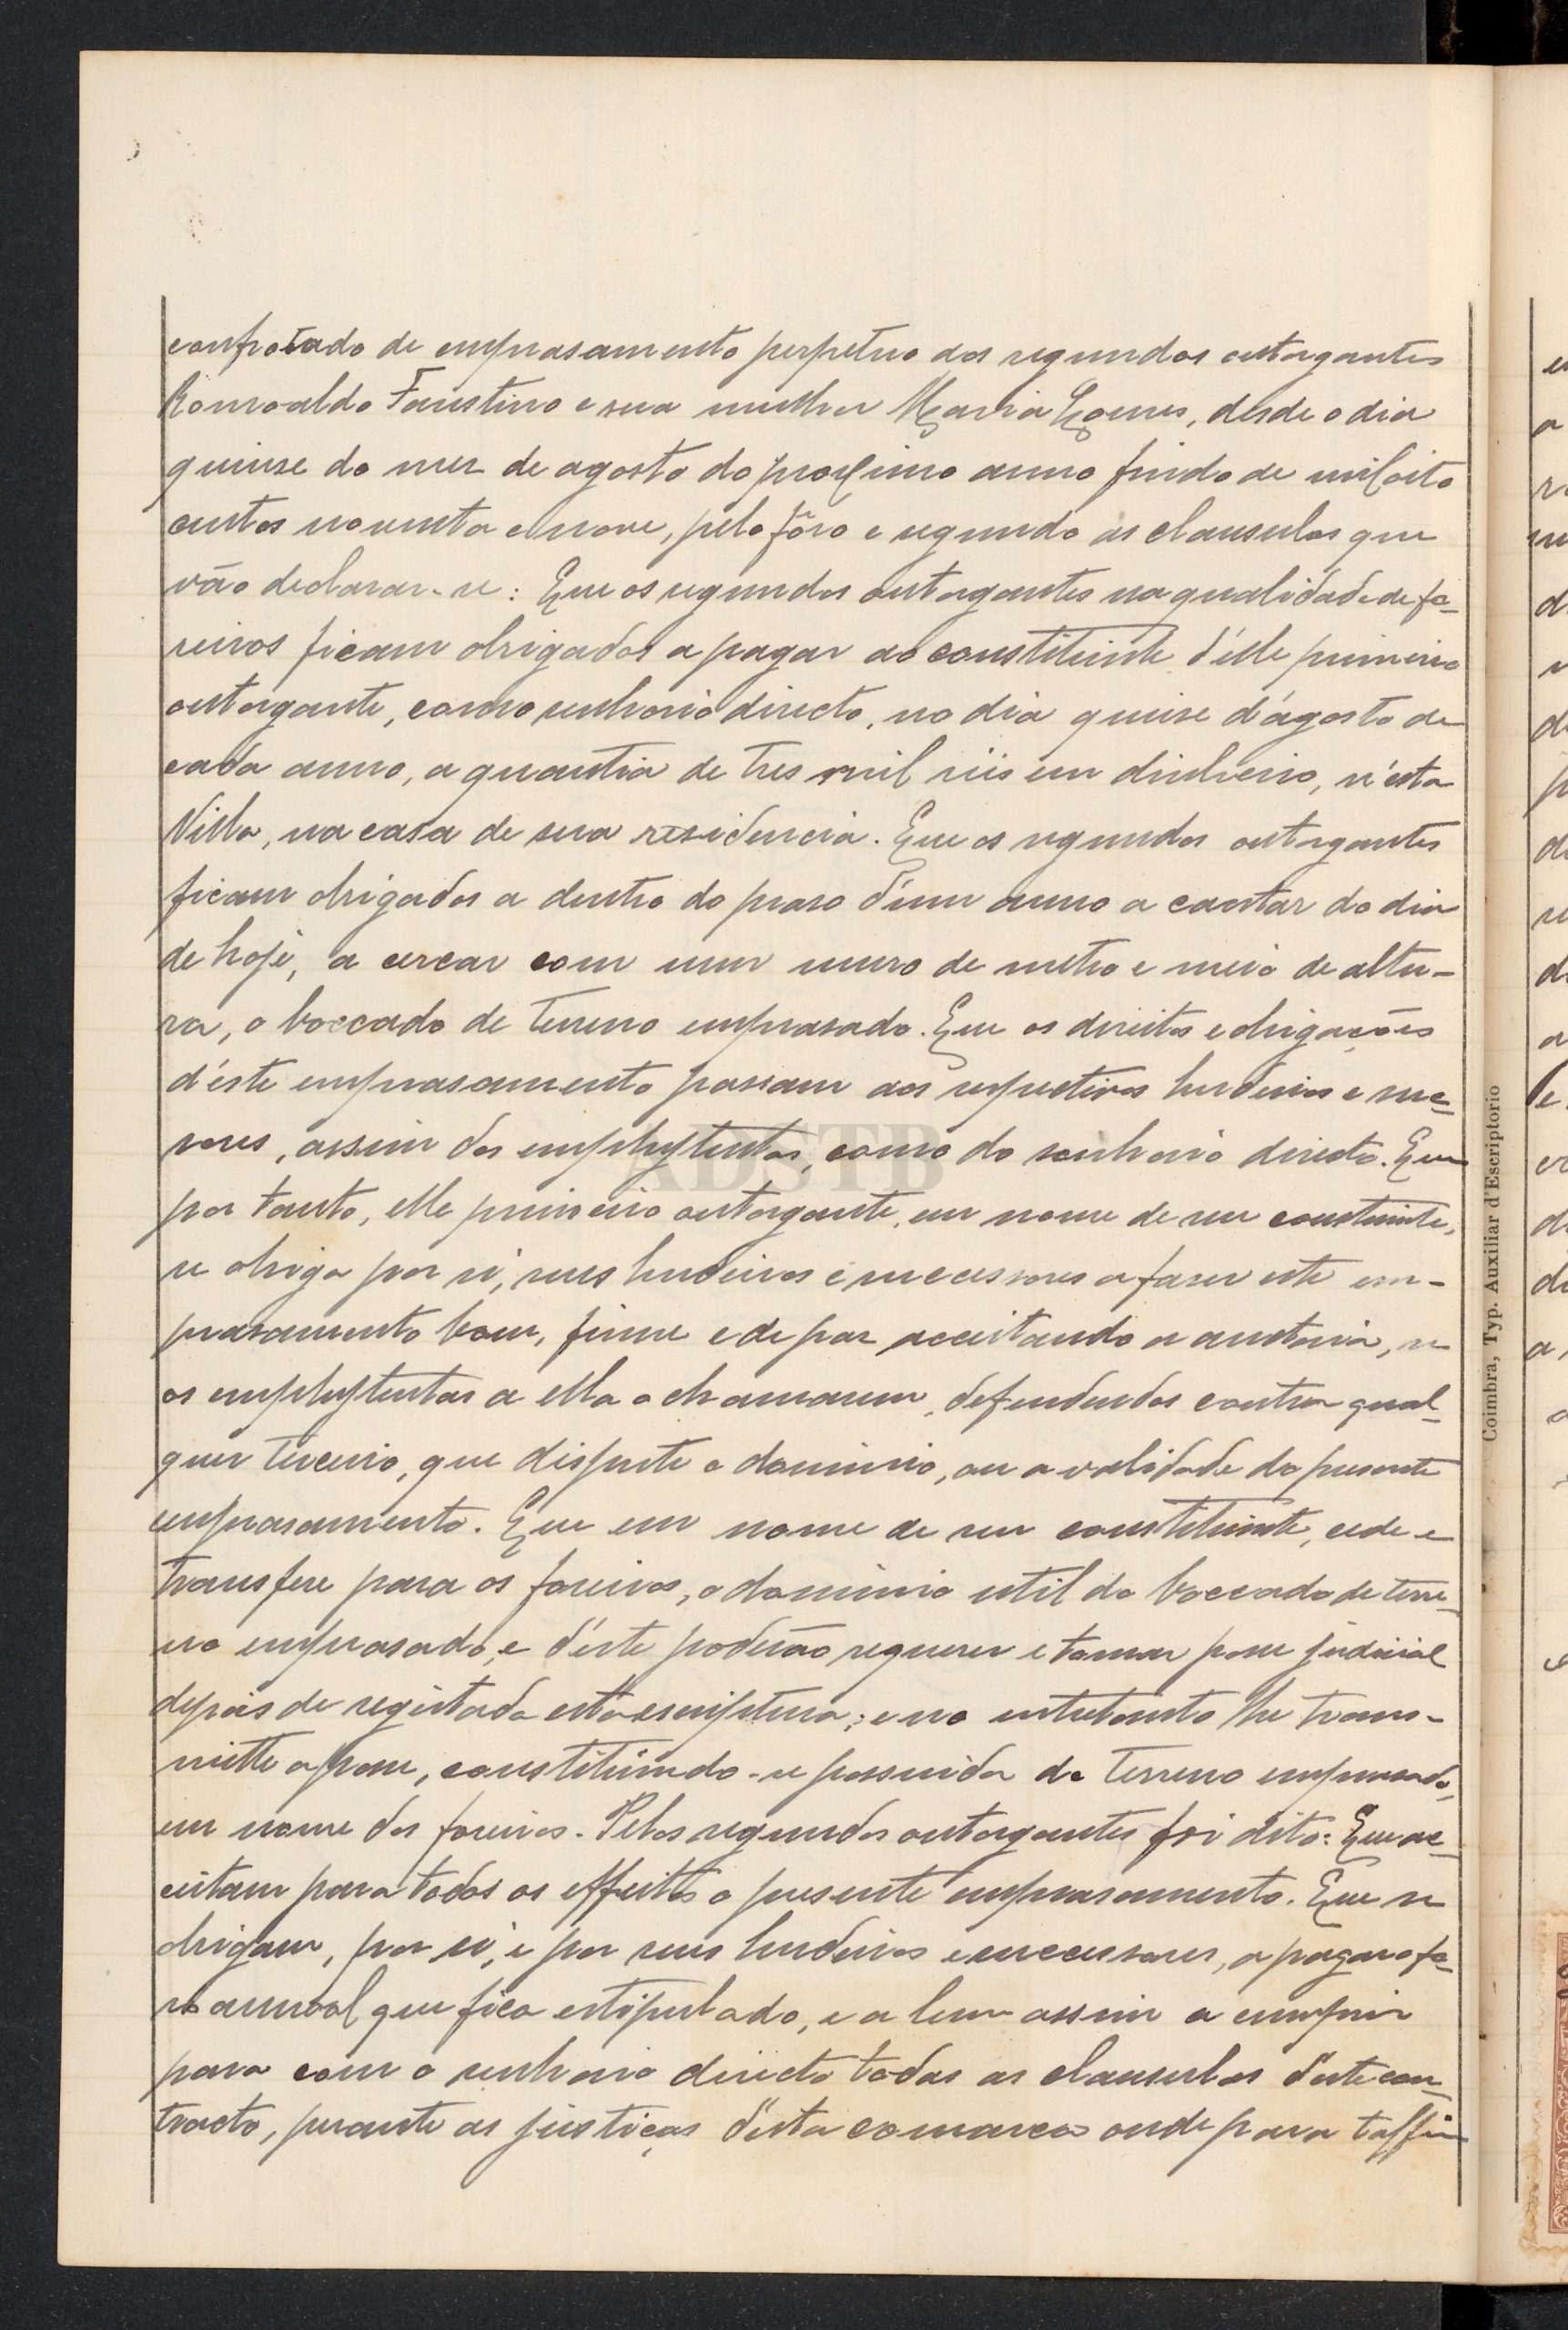 confrotado de emprasamento perpetuo dos segundos outorgantes
Romoaldo Faustino e sua mulher Maria Gomes, desde o dia
quinse do mez de agosto do proximo anno findo de mil oito
centos noventa e nove, pelo fôro e segundo as clausulas que
vão declarar-se: Que os segundos outorgantes na qualidade de fo-
reiros ficam obrigados a pagar ao constituinte d'elle primeiro
outorgante, como senhorio directo, no dia quinse d'agosto de
cada anno, a quantia de tres mil réis em dinheiro, n'esta
Villa, na casa de sua residencia. Que os segundos outorgantes
ficam obrigados a dentro do praso d'um anno a contar do dia
de hoje, a cercar com um muro de metro e meio de altu-
ra, o boccado de terreno emprasado. Que os direitos e obrigações
d'este emprasamento passam aos respectivos herdeiros e suc-
sores, assim dos emphyteutas, como do senhorio directo. Que
por tanto, elle primeiro outorgante, em nome de seu constituinte,
se obriga por si, seus herdeiros e successores a faser este em-
prasamento bom, firme e de paz acceitando a auctoria, se
os emphyteutas a ella o chamarem, defendendos contra qual-
quer terceiro, que dispute o dominio, ou a validade do presente
emprasamento. Que em nome de seu constituinte, cede e
transfere para os foreiros, o dominio util do boccado de terre-
no emprasado, e d'este poderão requerer e tomar posse judicial
depois de registada esta escriptura; e no entretanto lhe trans-
mitte a posse, constituindo-se possuidor do terreno emprasado,
em nome dos foreiros. Pelos segundos outorgantes foi dito: Que ac-
ceitam para todos os effeitos o presente emprasamento. Que se
obrigam, por si, e por seus herdeiros e successores, a pagar o fo-
ro annual que fica estipulado, e a lem assim a cumprir
para com o senhorio directo todas as clausulas d'este con-
tracto, perante as justiças d'esta comarca onde para tal fim
Coimbra, Typ. Auxiliar d'Escriptorio
ADSTB